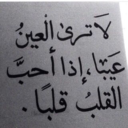 لَا تَرىٰ العينُ
عَيبًا، إذا أحبَّ
القلبُ قلبًا .